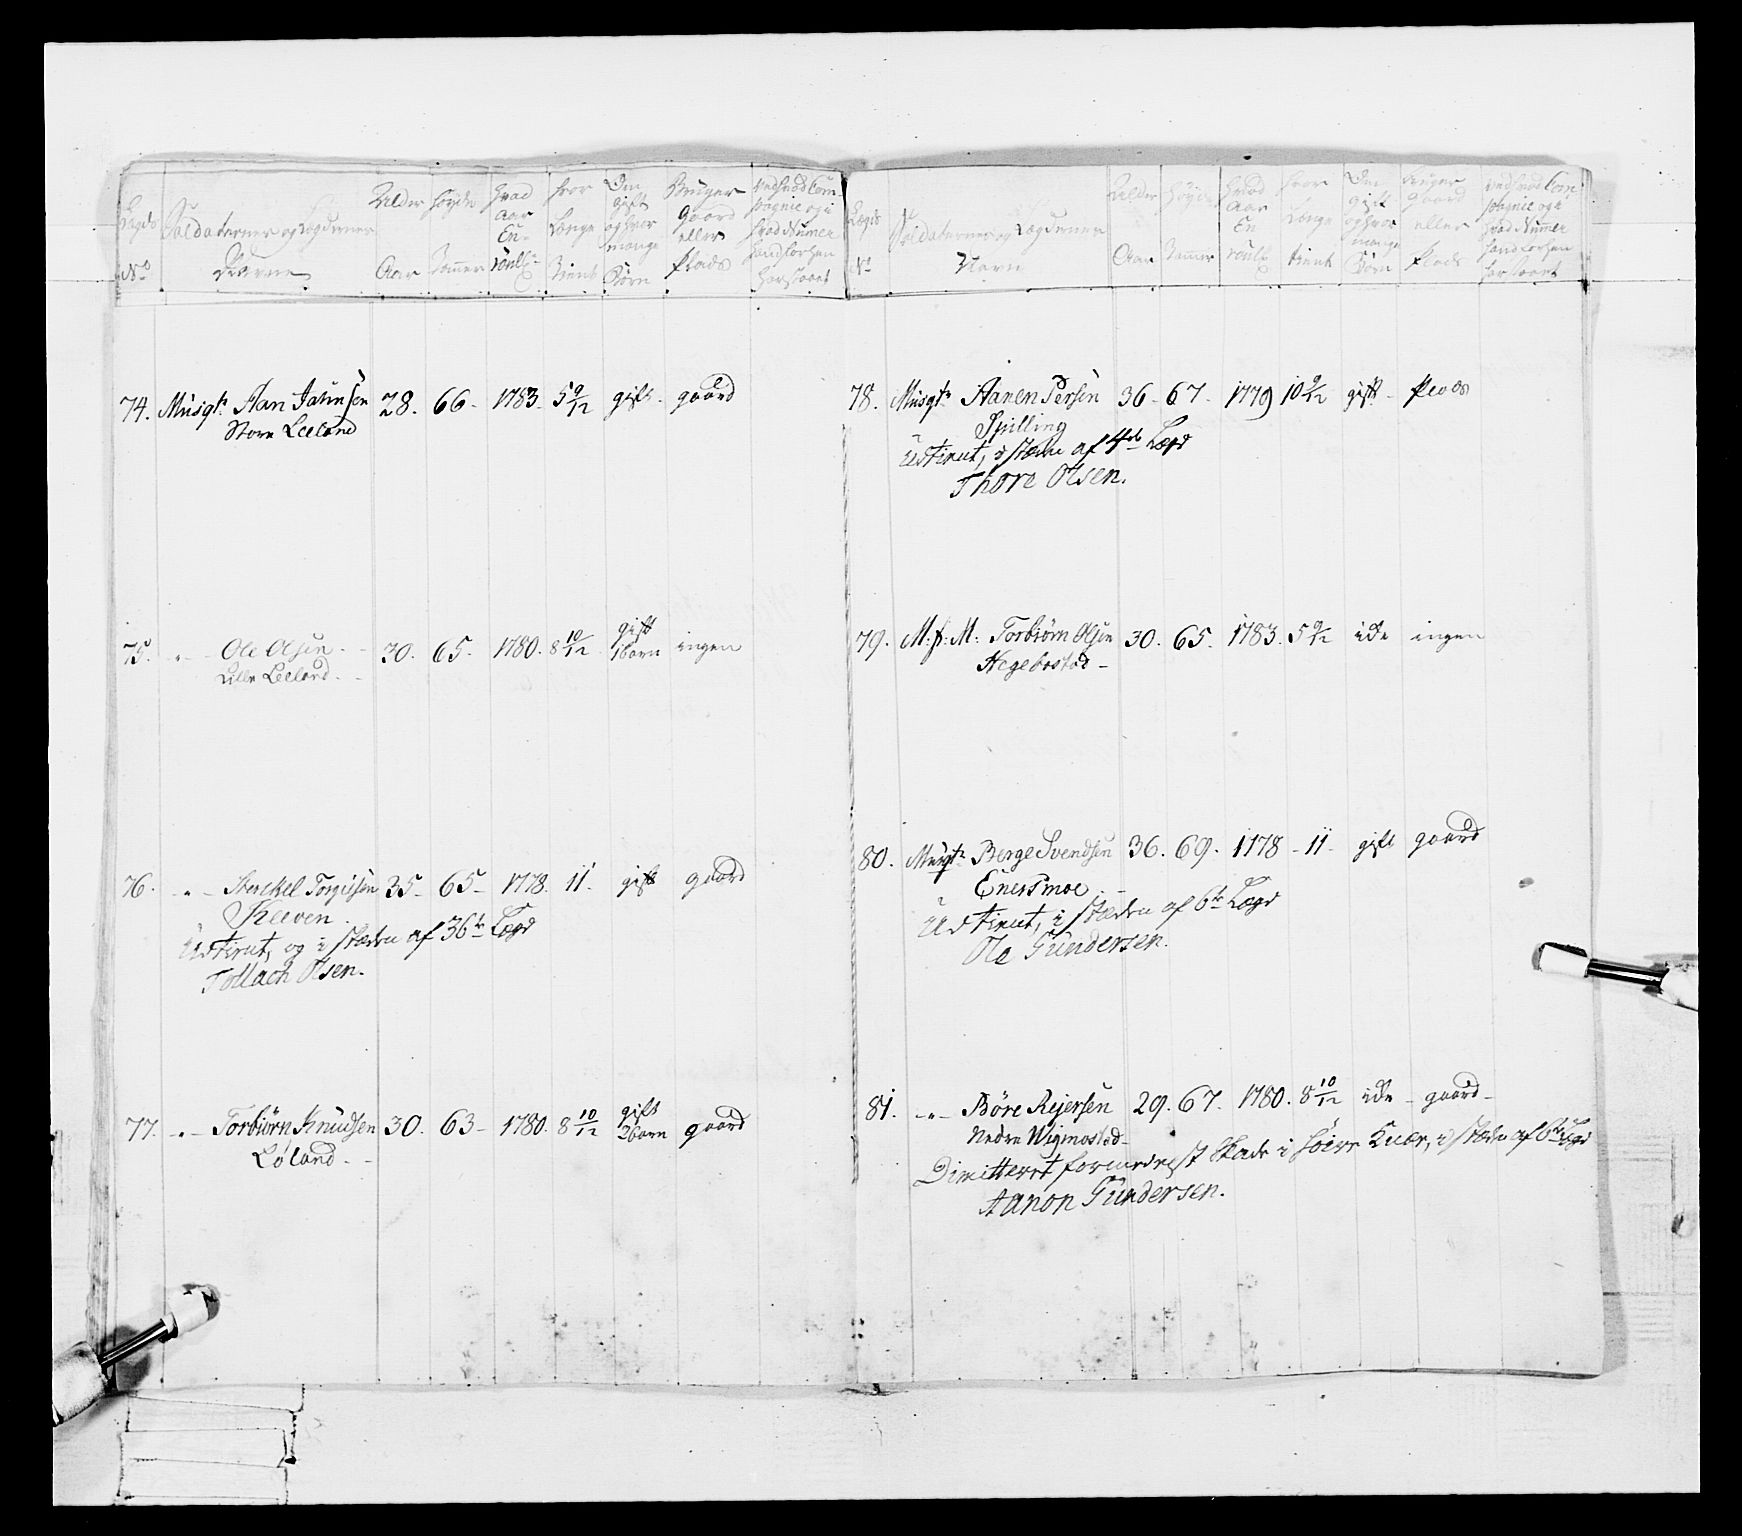 Lægds Soldaternes og Lægdernes Alder Høyde Hvad Hvor Om Bruger Ved hvad Com-
Aar længe gift gaard pagnie og i
En- og hvor eller hvad Numer
No Navne Aar Tommer roull: tient mange Plads Landcorpsen
Børn har staaet
74. Musqt: Aan Jahnsen 28. 66- 1783- 5 9/12 gift. gaard
Store Leeland
75. -"- Ole Olsen 30. 65- 1780. 8 10/12 gift 1 barn ingen
Lille Leeland
76. -"- Terckel Torgiusen 35- 65- 1778. 11- gift gaard
Kleven
Udtient, og i stæden af 36te Lægd
Tollach Olsen.
77. -"- Torbiørn Knudsen 30. 63- 1780. 8 10/12 gift 2 barn gaard
Løland
Lægds Soldaternes og Lægdernes Alder Høyde Hvad Hvor Om Bruger Ved hvad Com-
Aar Længe gift gaard pagnie og i
En og hvor eller hvad Numer
No Navn Aar Tommer roull: tient mange Plads Landcorpsen
Børn har staaet
78. Musqt: Aanen Persen 36- 67- 1779 10 9/12 gift- Plads
Spilling
Udtient, i stæden af 4de Lægd
Thore Olsen.
79. M:f:M: Torbiørn Olsen 30. 65. 1783. 5 9/12 ide ingen
Hegebostad-
80. Musqt: Berge Svendsen 36. 69. 1778 - 11- gift gaard
Enersmoe
Udtient, i stæden af 6te Lægd
Ole Gundersen.
81. -"- Børe Rejersen 29. 67. 1780. 8 10/12 ide - gaard-
Nedre Wigmostad-
Dimitteret formedelst Skade i høire Knæ, i stæden af 6te Lægd
Aanon Gundersen.